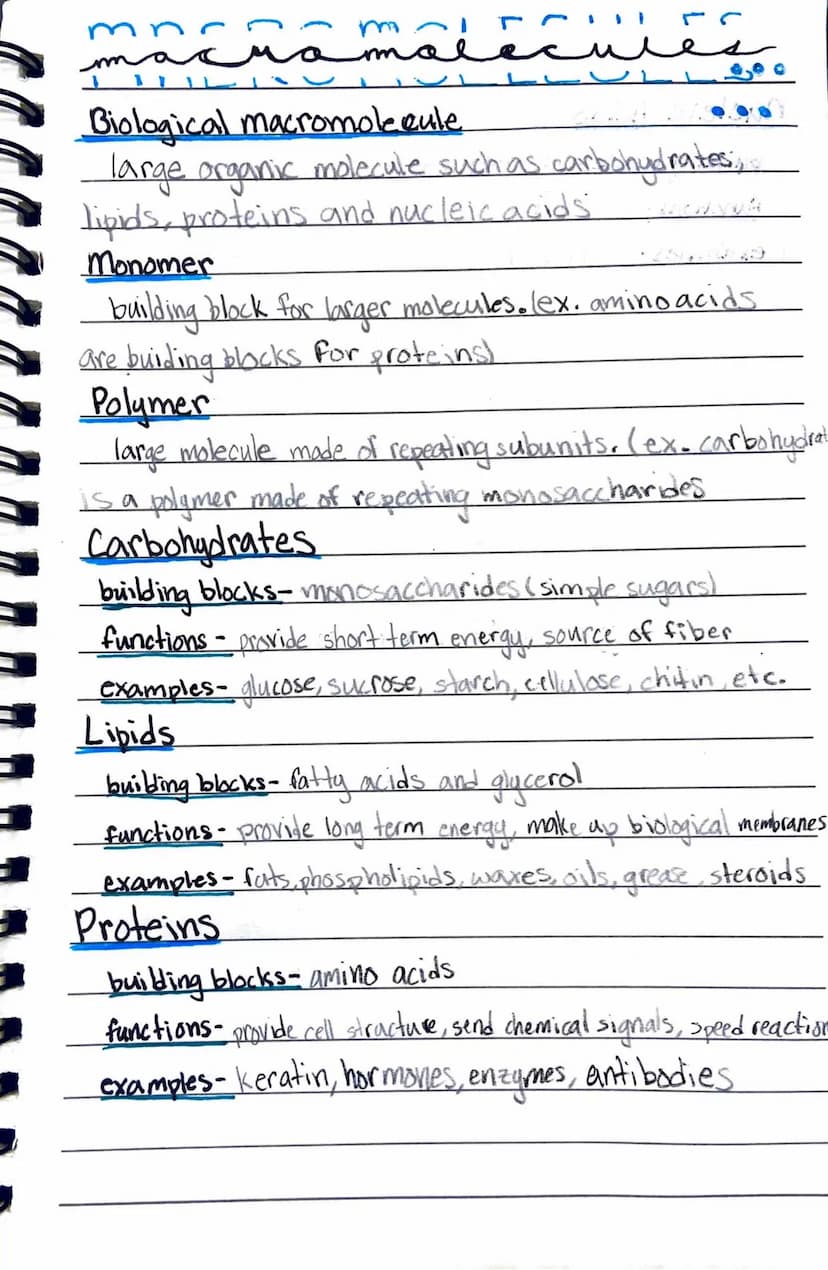 macromolecules
Biological macromolecule
large organic molecule such as carbohydrates,
lipids, proteins and nucleic acids
Monomer
building block for larger molecules. (ex. amino acids
are buiding blocks for proteins)
Polymer
large molecule made of repeating subunits. (ex. carbohydrat
is a polymer made of repeating monosaccharides
Carbohydrates
building blocks- monosaccharides (simple sugars)
functions - provide short term energy, source of fiber
examples- glucose, sucrose, starch, cellulose, chitin, etc.
Lipids
building blocks- fatty acids and glycerol
functions- provide long term energy, make up biological membranes
examples- fats, phospholipids, waxes, oils, grease, steroids
Proteins
building blocks- amino acids
functions- provide cell structure, send chemical signals, speed reaction
examples- keratin, hormones, enzymes, antibodies